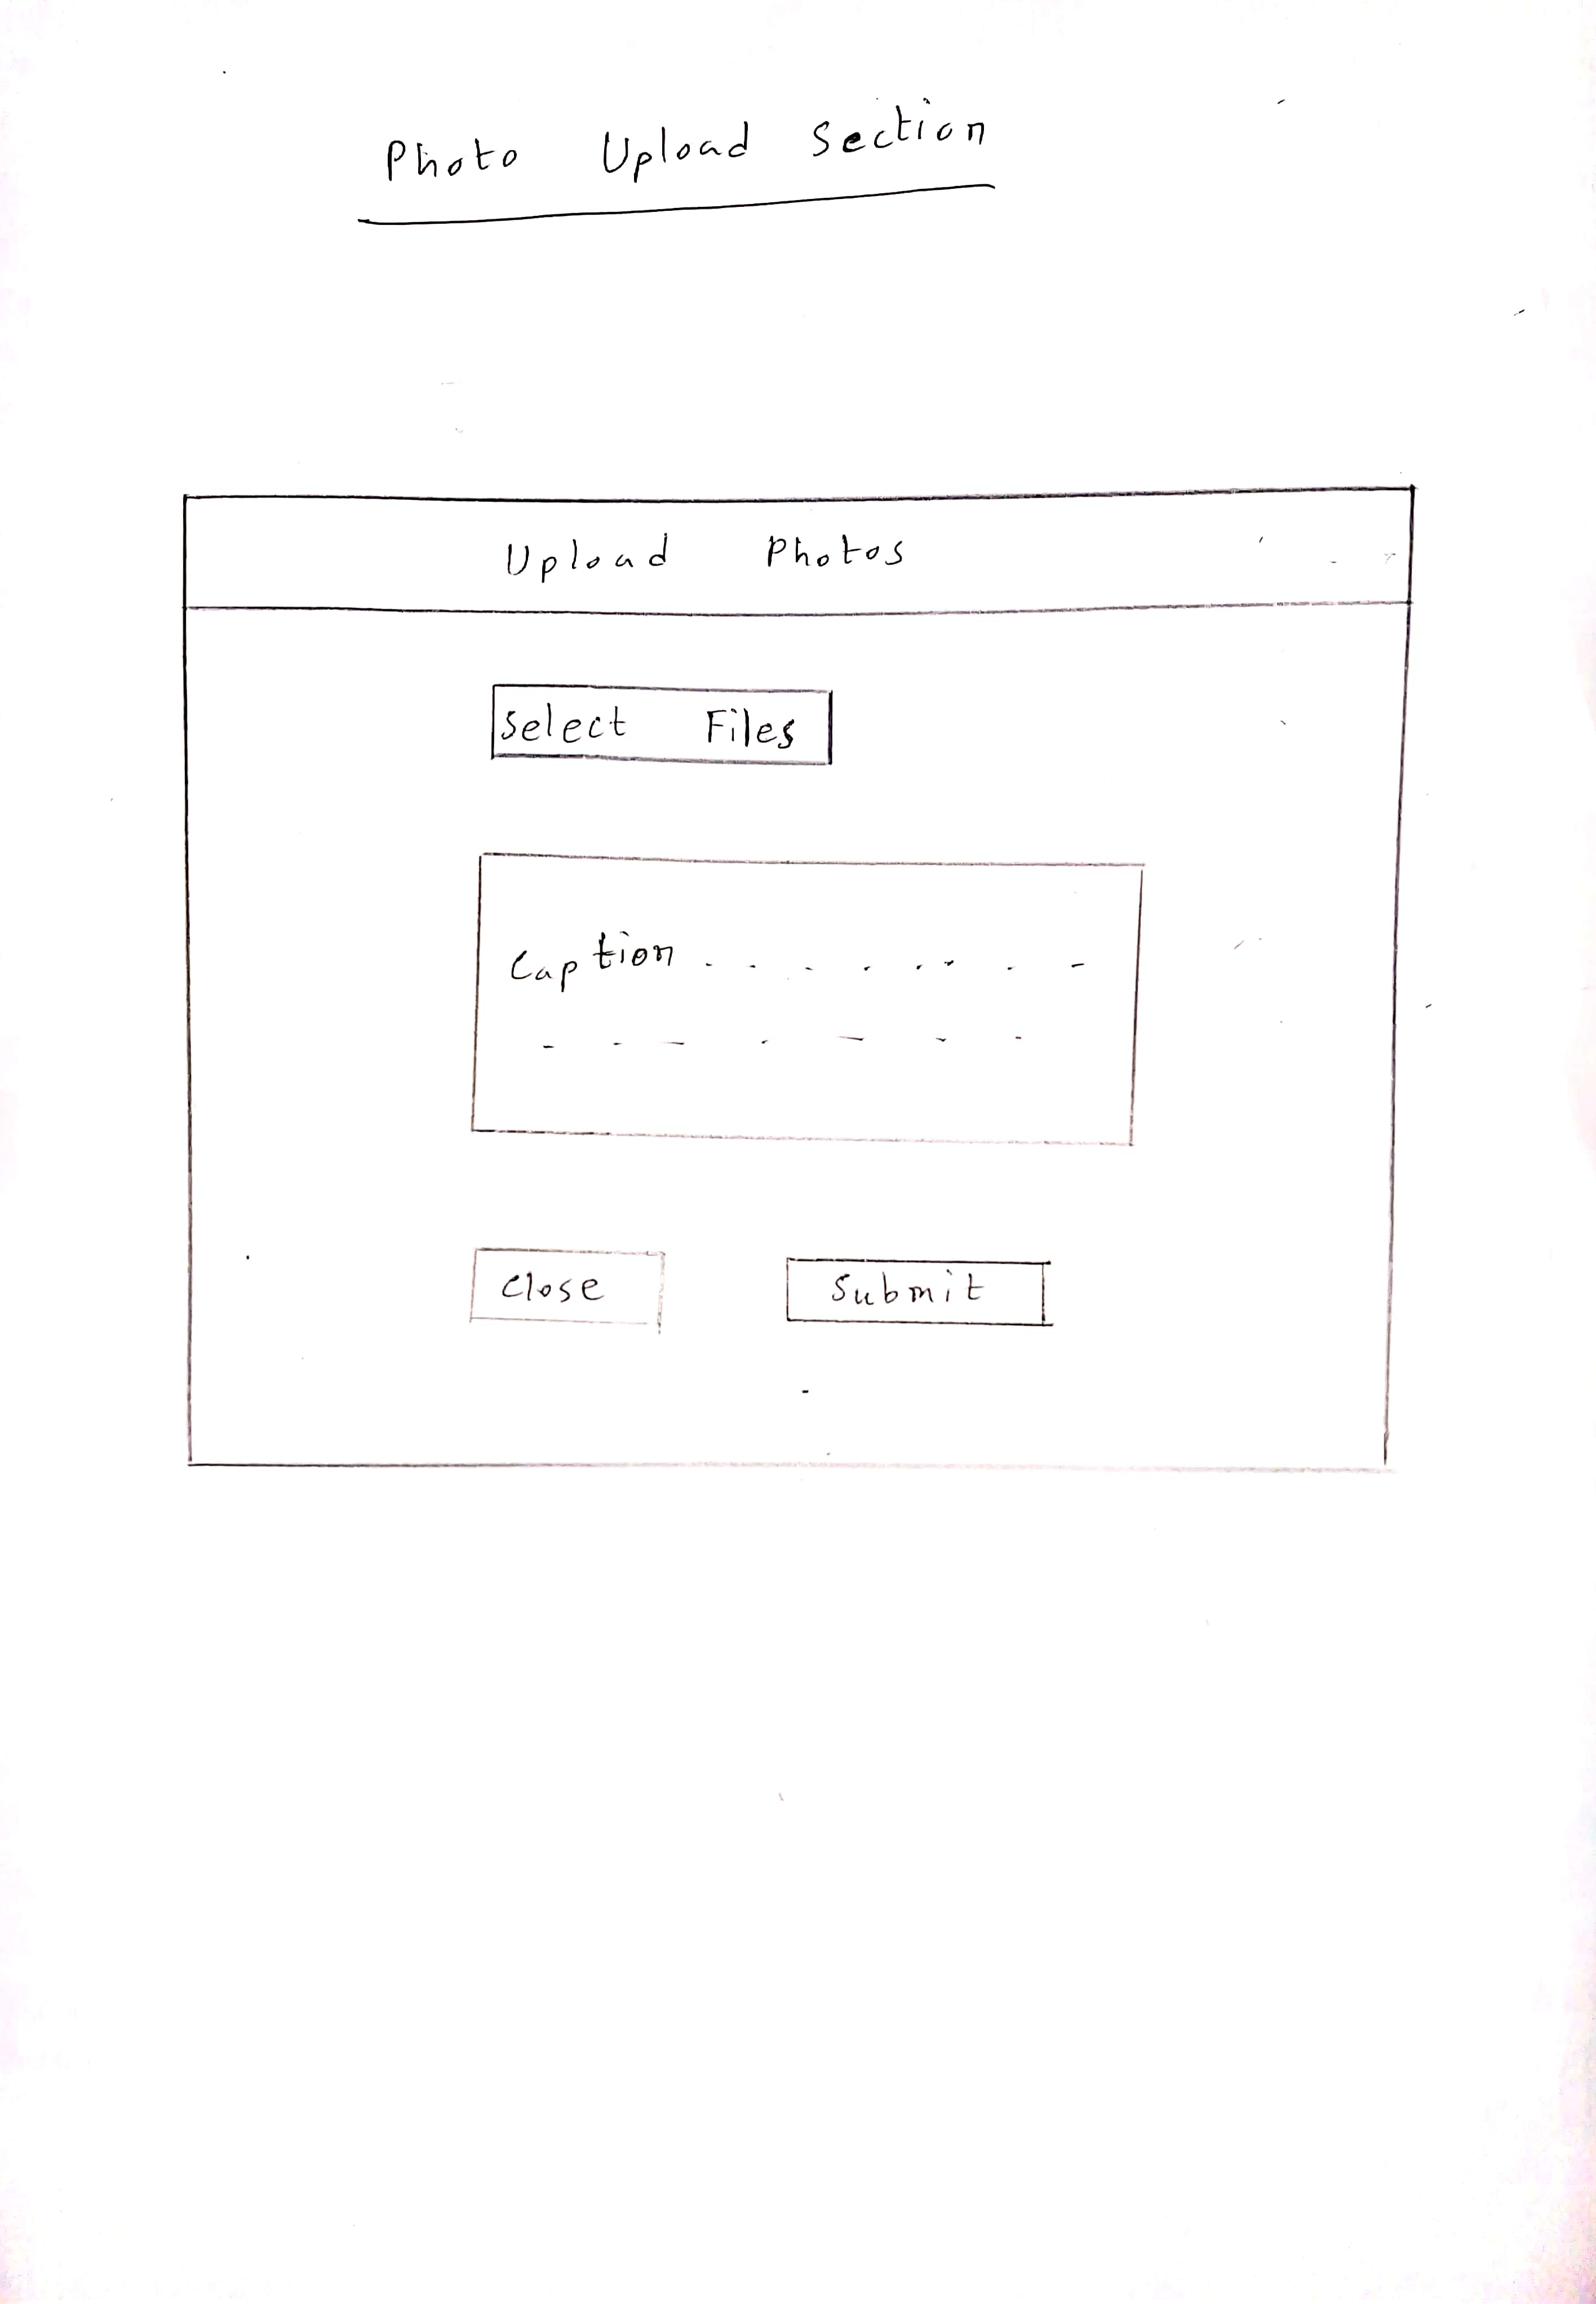 Photo Upload Section
Upload Photos
Select Files
Caption . . . . . . . . -
- - - - - - -
Close Submit